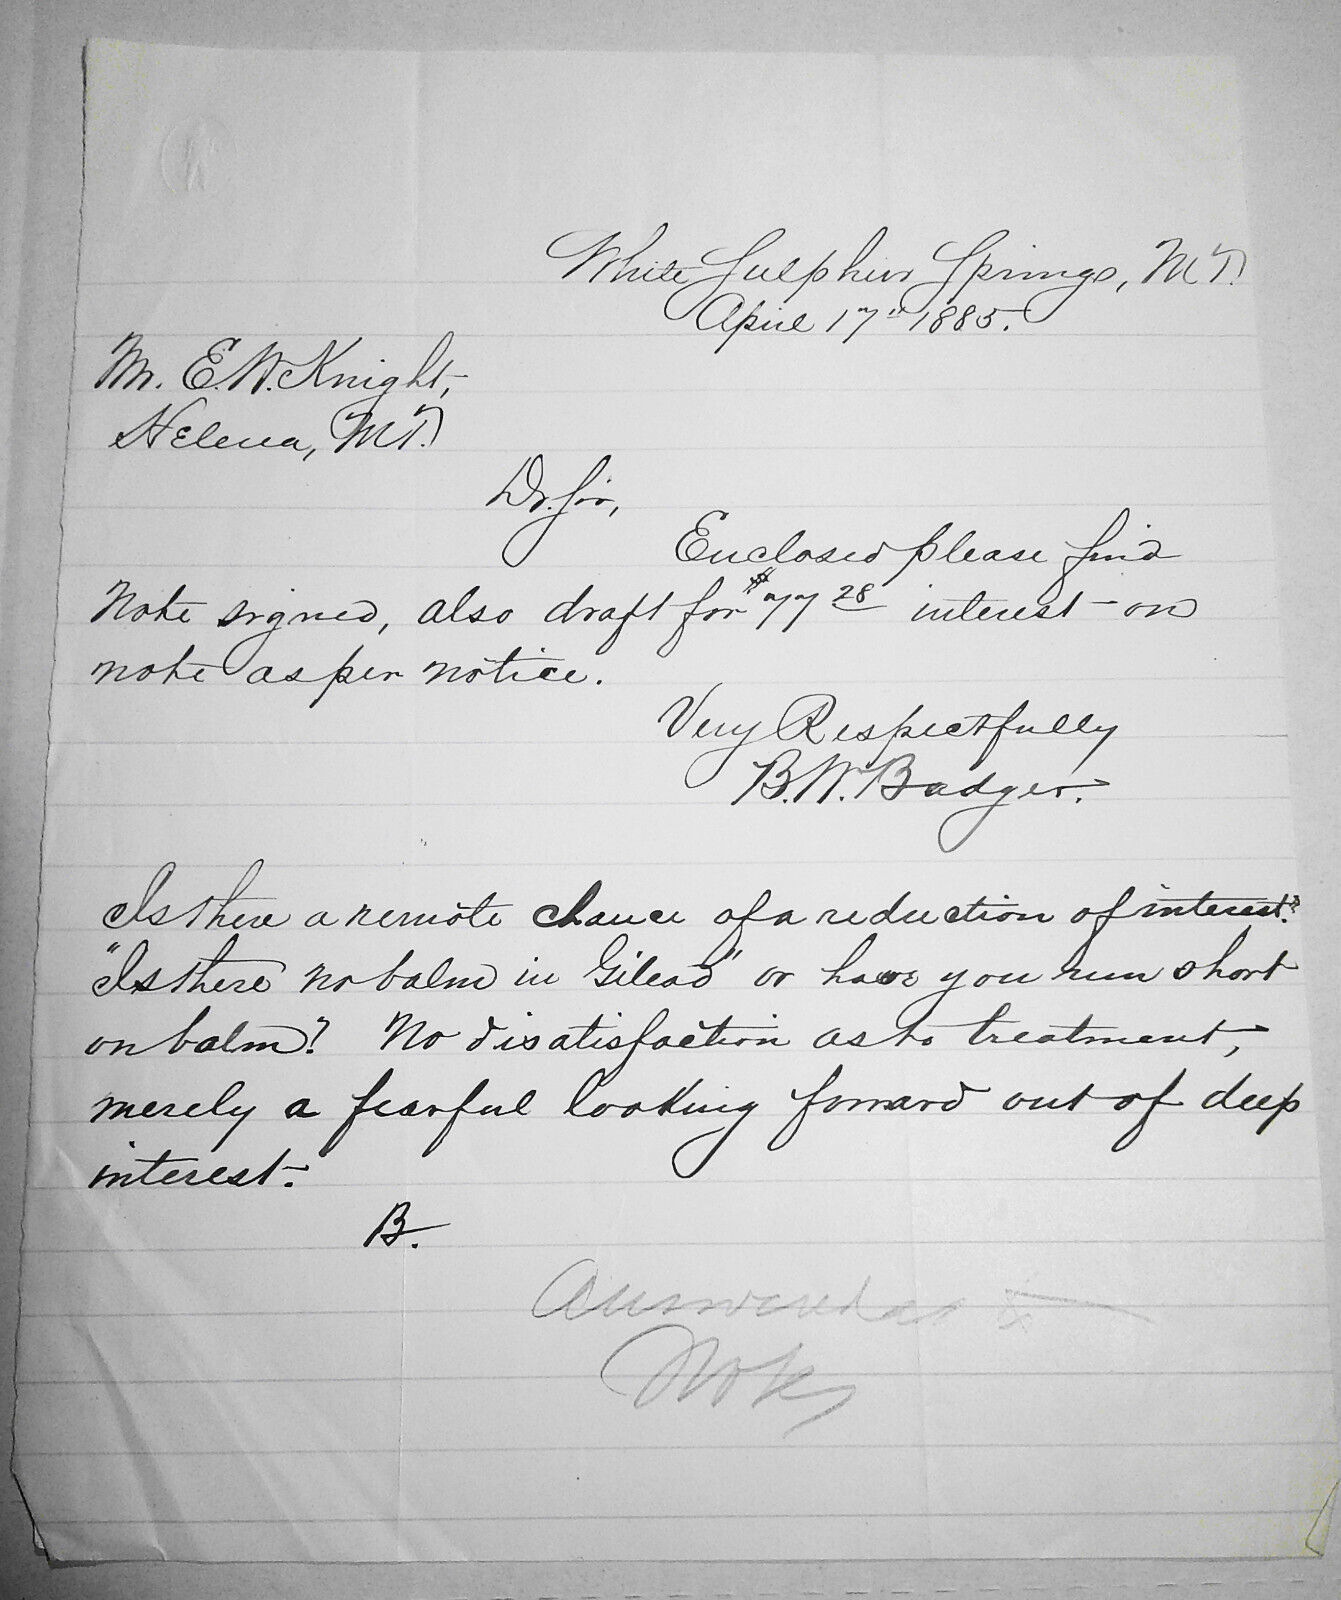 White Sulphur Springs, M.T.
April 17th 1885.
Mr. E. W. Knight,
Helena, M.T.
Dr. Sir,
Enclosed please find
Note signed, also draft for $77 28 interest on
note as per notice.
Very Respectfully
B. W. Badger.
Is there a remote chance of a reduction of interest?
"Is there no balm in Gilead" or have you run short
on balm? No disatisfaction as to treatment,
merely a fearful looking forward out of deep
interest.
B.
Answered as to
Note